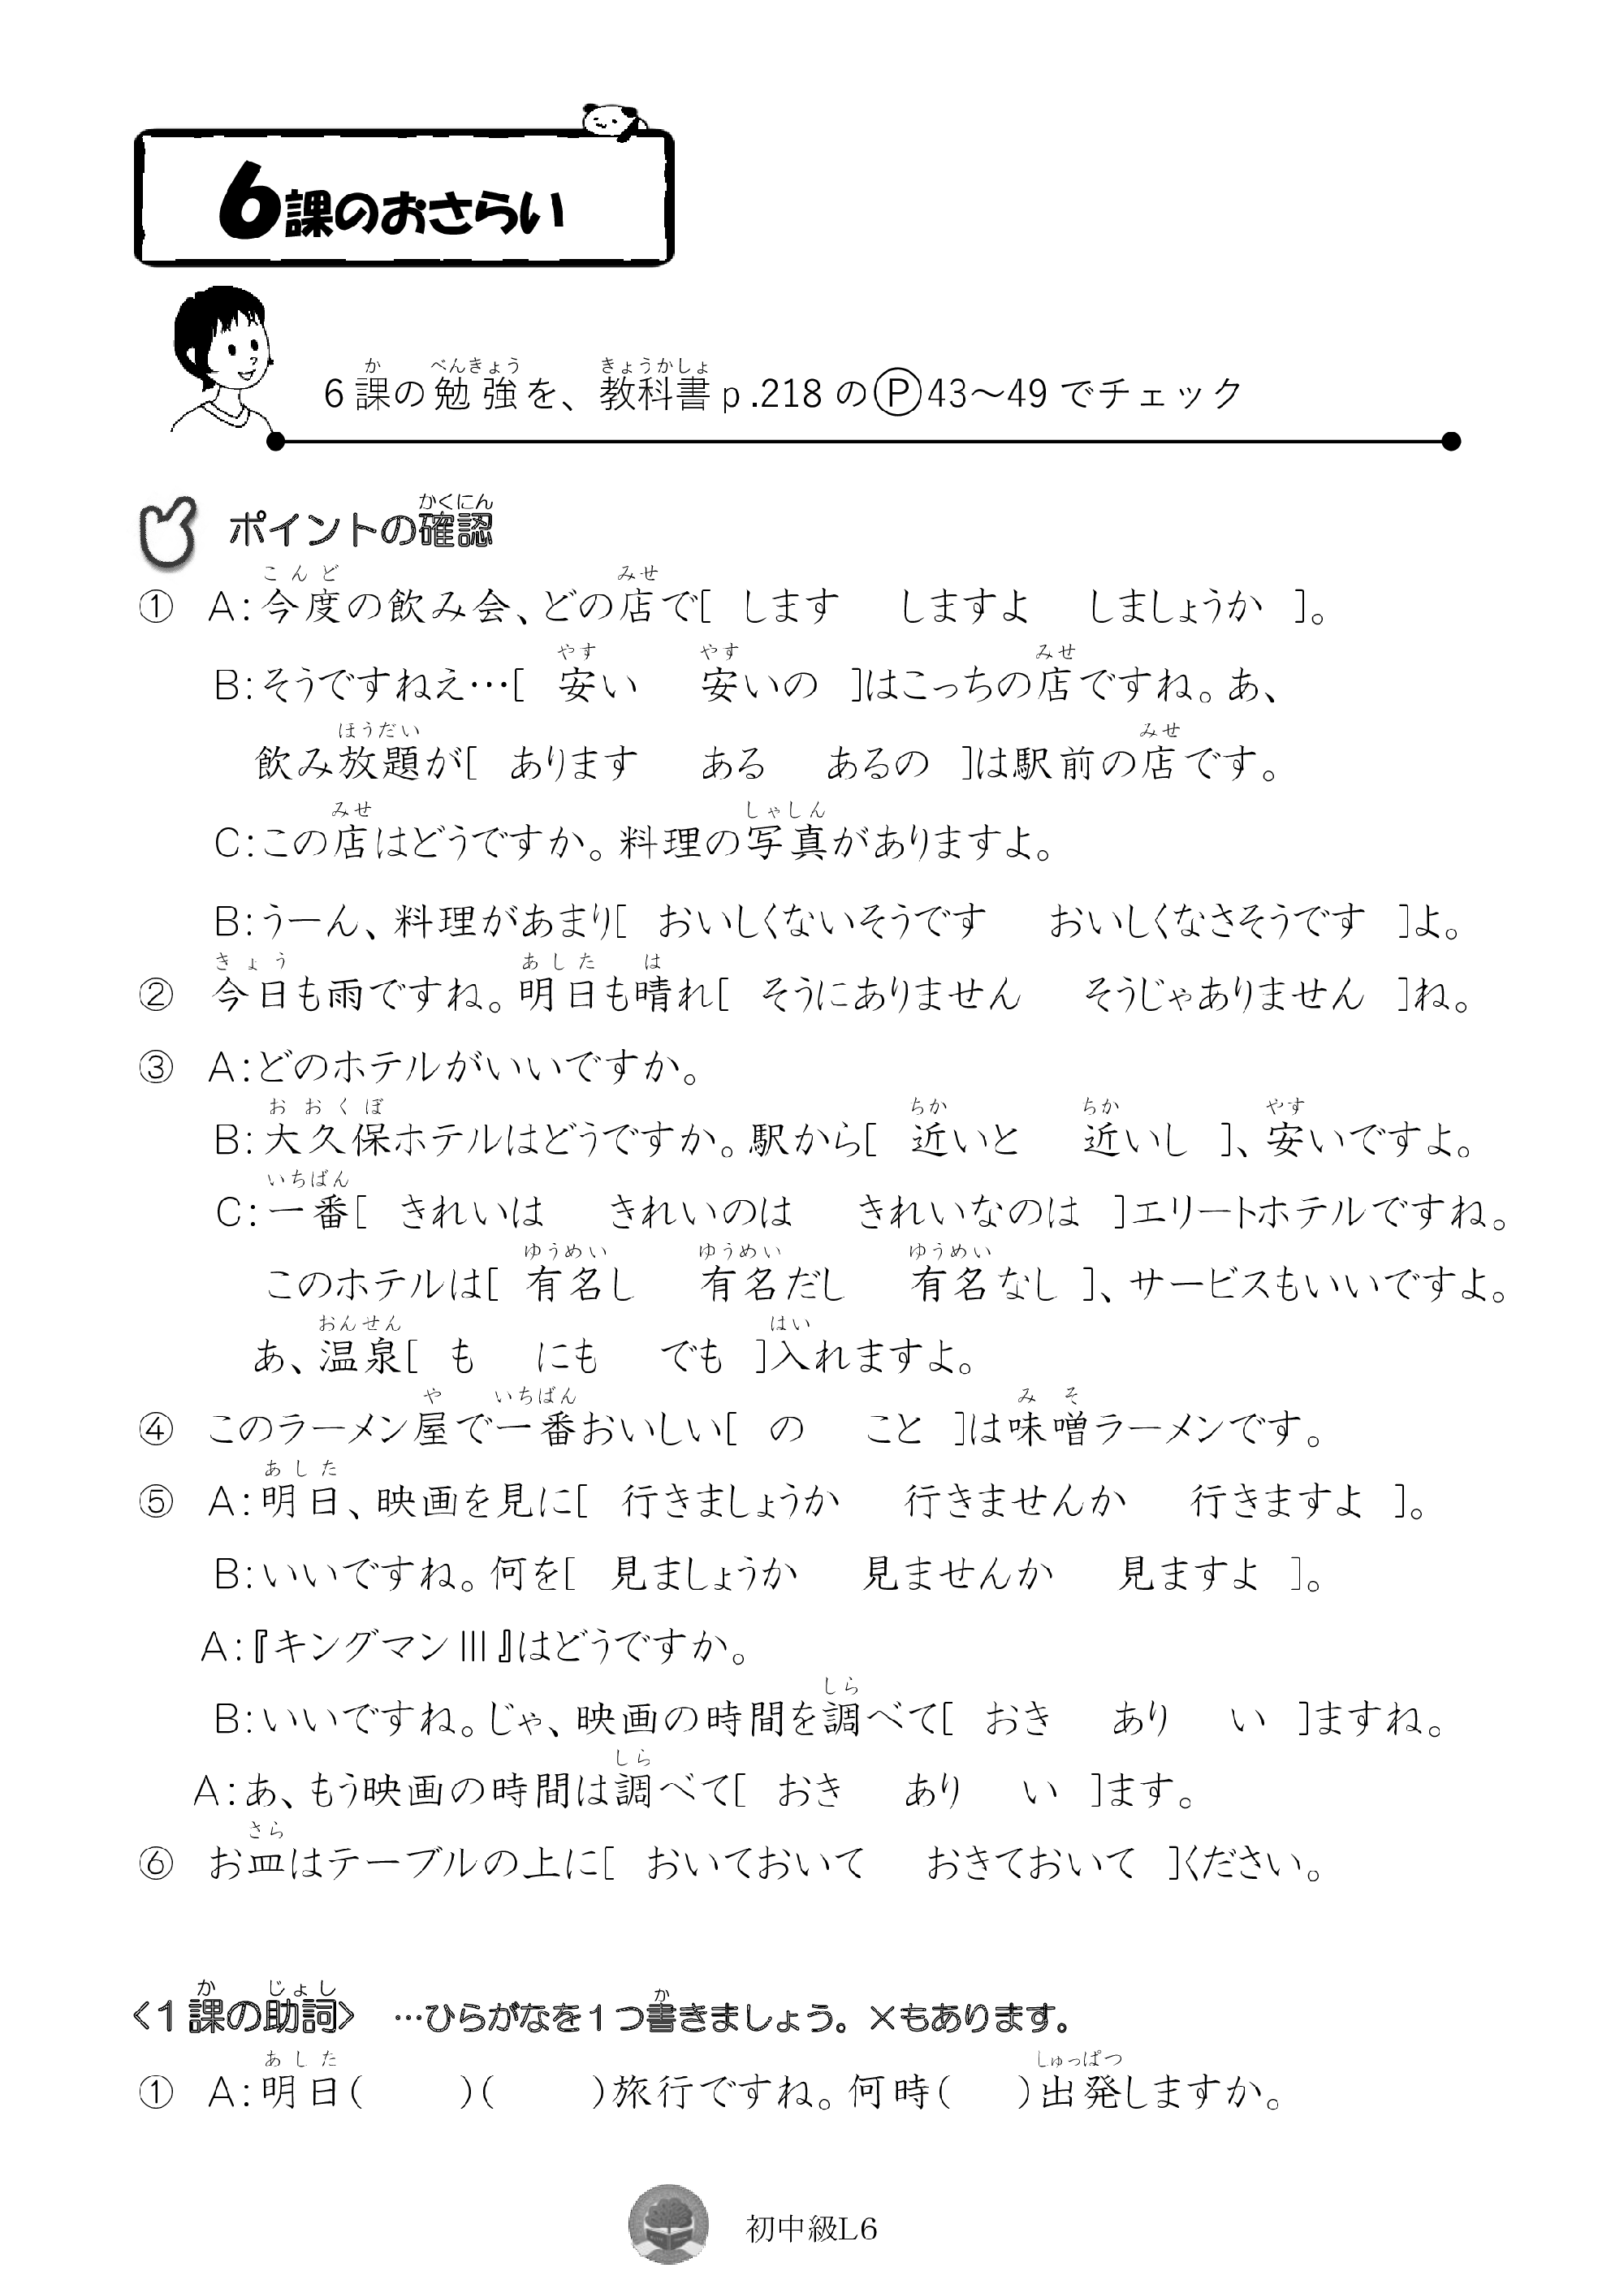 6課のおさらい
6課の勉強を、教科書p.218のⓅ43～49でチェック
ポイントの確認
① A:今度の飲み会、どの店で[ します しますよ しましょうか ]。
B:そうですねえ…[ 安い 安いの ]はこっちの店ですね。あ、
飲み放題が[ あります ある あるの ]は駅前の店です。
C:この店はどうですか。料理の写真がありますよ。
B:うーん、料理があまり[ おいしくないそうです おいしくなさそうです ]よ。
② 今日も雨ですね。明日も晴れ[ そうにありません そうじゃありません ]ね。
③ A:どのホテルがいいですか。
B:大久保ホテルはどうですか。駅から[ 近いと 近いし ]、安いですよ。
C:一番[ きれいは きれいのは きれいなのは ]エリートホテルですね。
このホテルは[ 有名し 有名だし 有名なし ]、サービスもいいですよ。
あ、温泉[ も にも でも ]入れますよ。
④ このラーメン屋で一番おいしい[ の こと ]は味噌ラーメンです。
⑤ A:明日、映画を見に[ 行きましょうか 行きませんか 行きますよ ]。
B:いいですね。何を[ 見ましょうか 見ませんか 見ますよ ]。
A:『キングマンⅢ』はどうですか。
B:いいですね。じゃ、映画の時間を調べて[ おき あり い ]ますね。
A:あ、もう映画の時間は調べて[ おき あり い ]ます。
⑥ お皿はテーブルの上に[ おいておいて おきておいて ]ください。
〈1課の助詞〉 …ひらがなを1つ書きましょう。×もあります。
① A:明日( )( )旅行ですね。何時( )出発しますか。
初中級L6